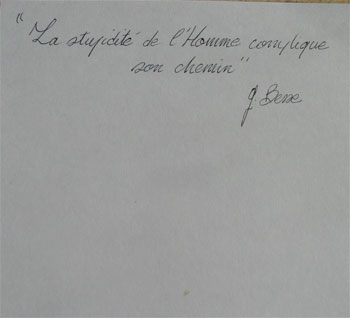 "La stupidité de l'Homme complique
son chemin"